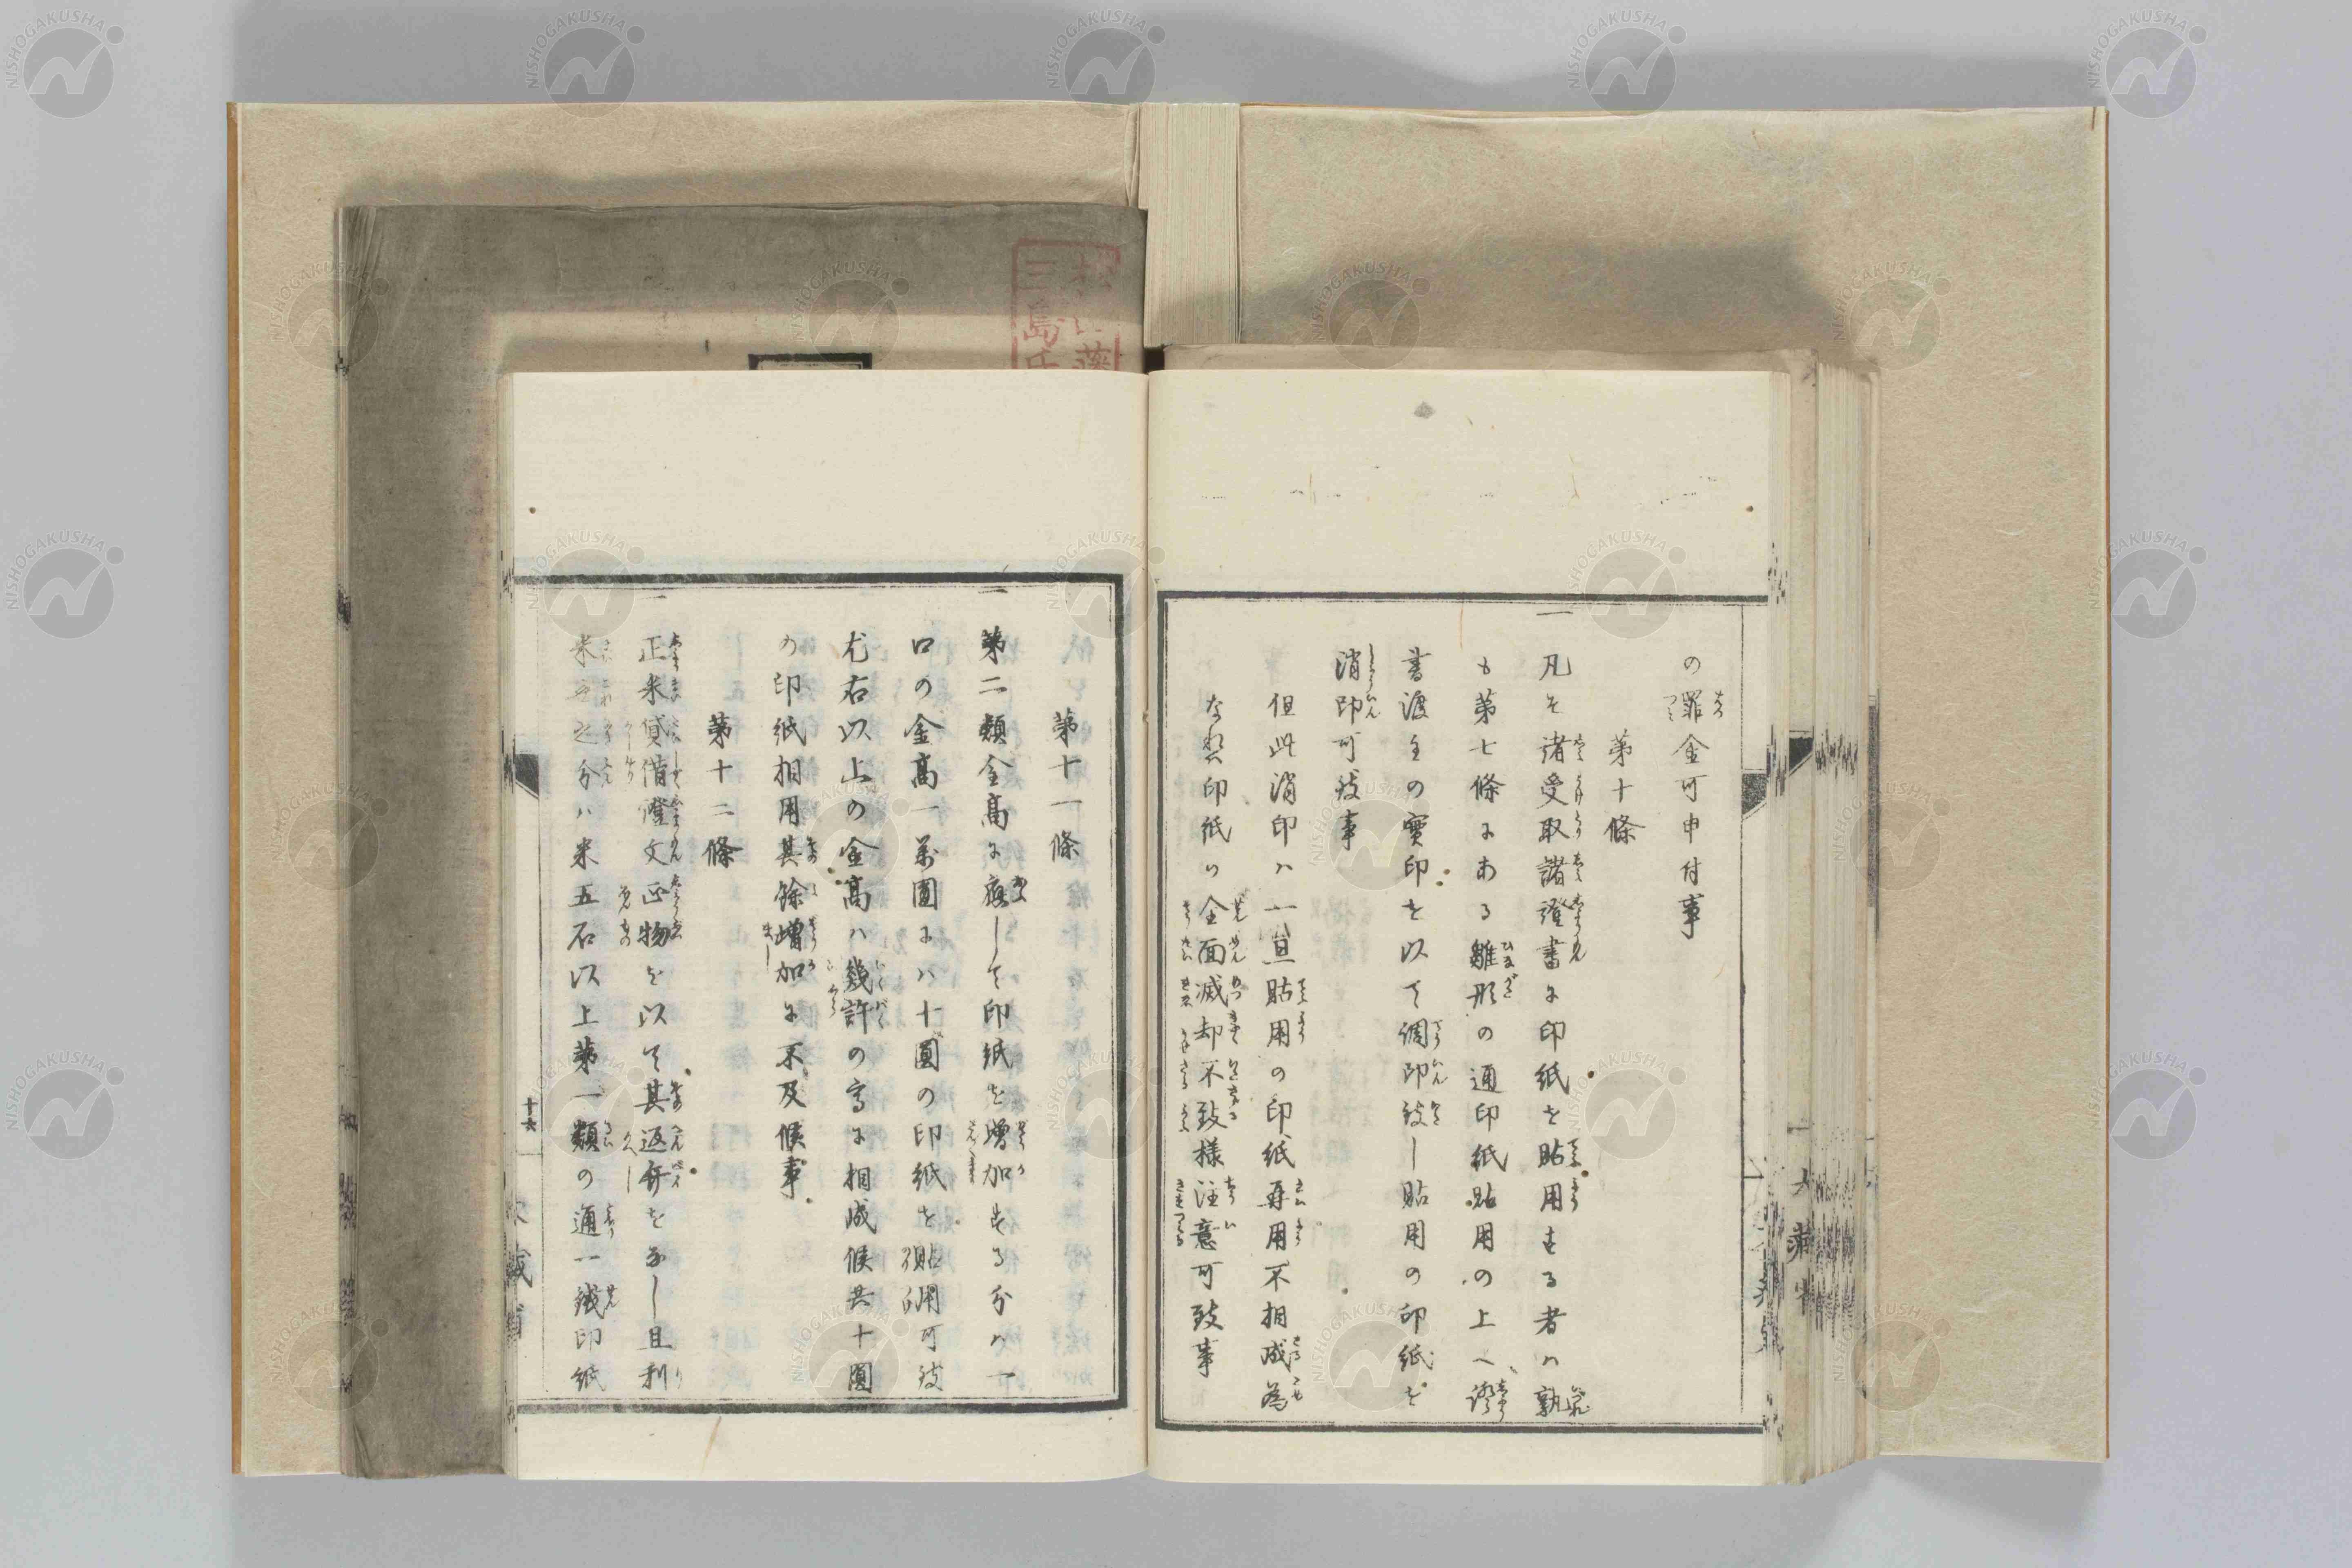 の罪金可申付事
第十條
一
凡を諸受取諸證書に印紙を貼用する者ハ熟
も第七條にある雛形の通印紙貼用の上へ證
書渡主の實印を以て調印致し貼用の印紙を
消印可致事
但此消印ハ一旦貼用の印紙再用不相成為
なれハ印紙の全面滅却不致様注意可致事
第十一條
一
第二類金高に應して印紙を増加する分ハ一
口の金高一萬圓にハ十圓の印紙を貼用可致
尤右以上の金高ハ幾許の高に相成候共十圓
の印紙相用其餘増加に不及候事
第十二條
一
正米貸借證文正物を以て其返弁をなし且利
米之分ハ米五石以上第一類の通一錢印紙
十六
大藏省
三島氏
NISHOGAKUSHA